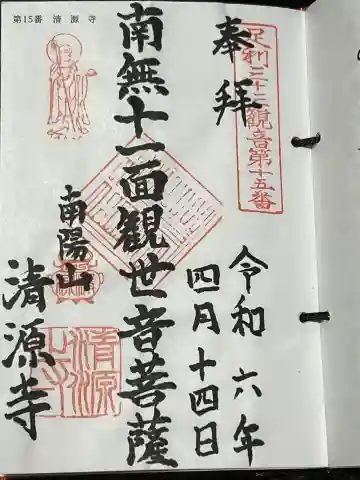 奉拝
足利三十三観音第十五番
令和六年
四月十四日
南無十一面観世音菩薩
南陽山
清源寺
第15番 清源寺
清源